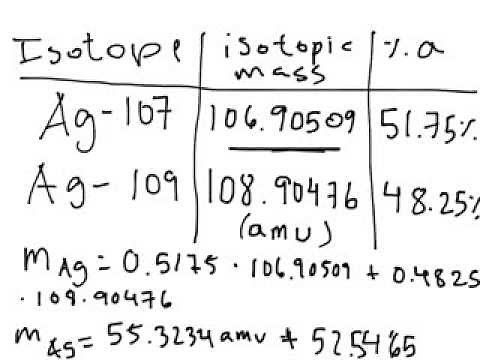 Isotope isotopic mass %.a
Ag-107 106.90509 51.75%
Ag-109 108.90476 48.25%
(amu)
mAg = 0.5175 · 106.90509 + 0.4825
· 108.90476
= 55.3234 amu + 52.5465